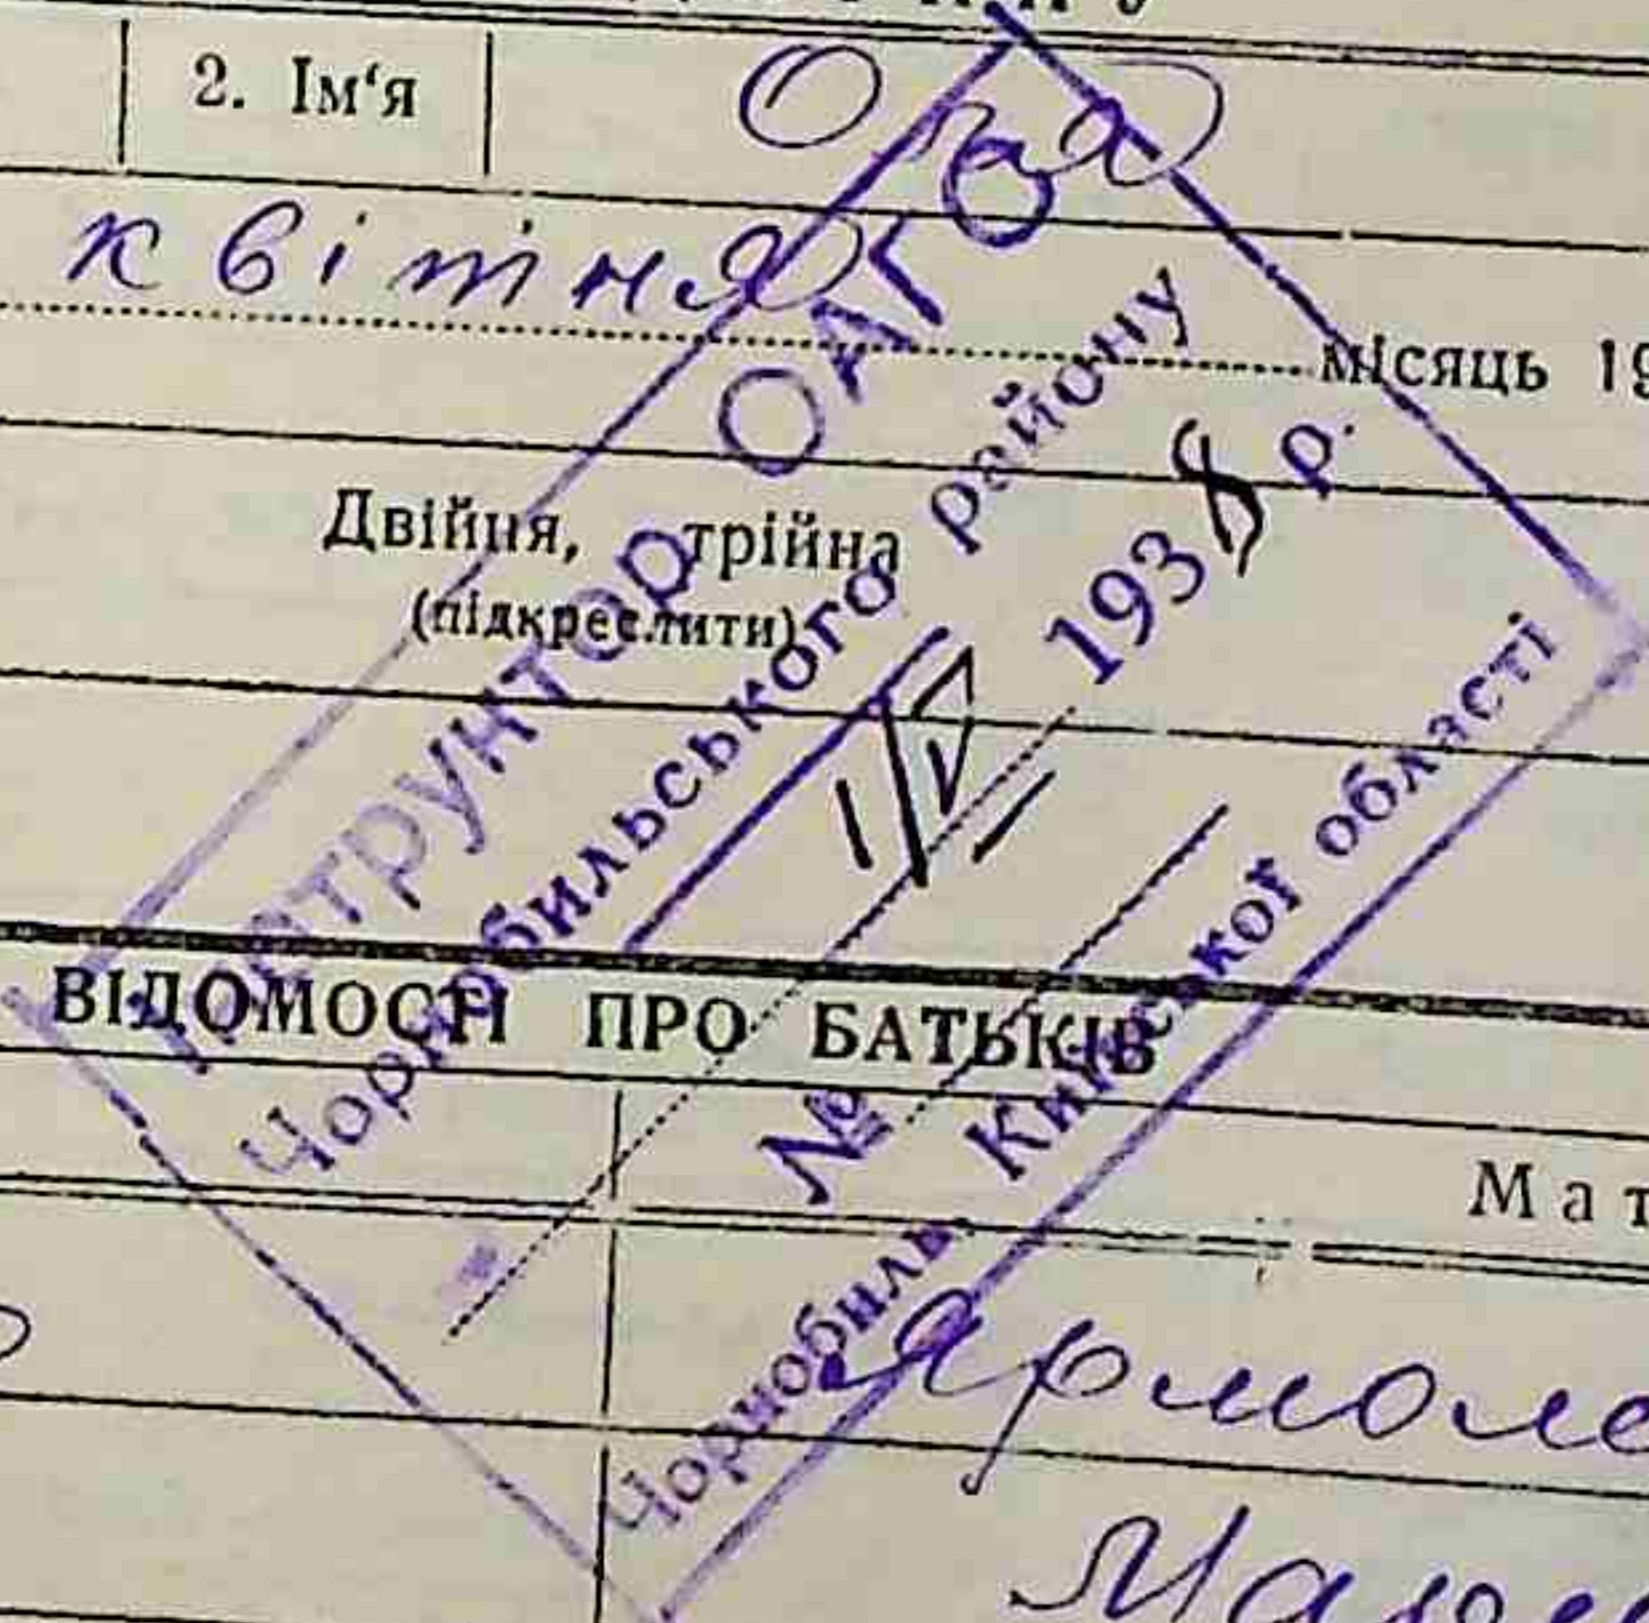 2. Ім‘я
квітня
місяць 19
Двійня, трійна
(підкреслити)
Інструктор ОАГО
Чорнобильського району
1938 р.
№
Чорнобиль, Київської області
ВІДОМОСТІ ПРО БАТЬКІВ
Мат
Ярмоле